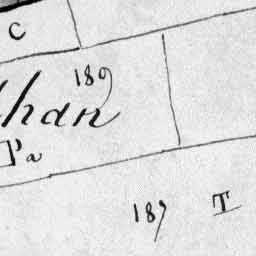 C
189
han
Pa
187 T